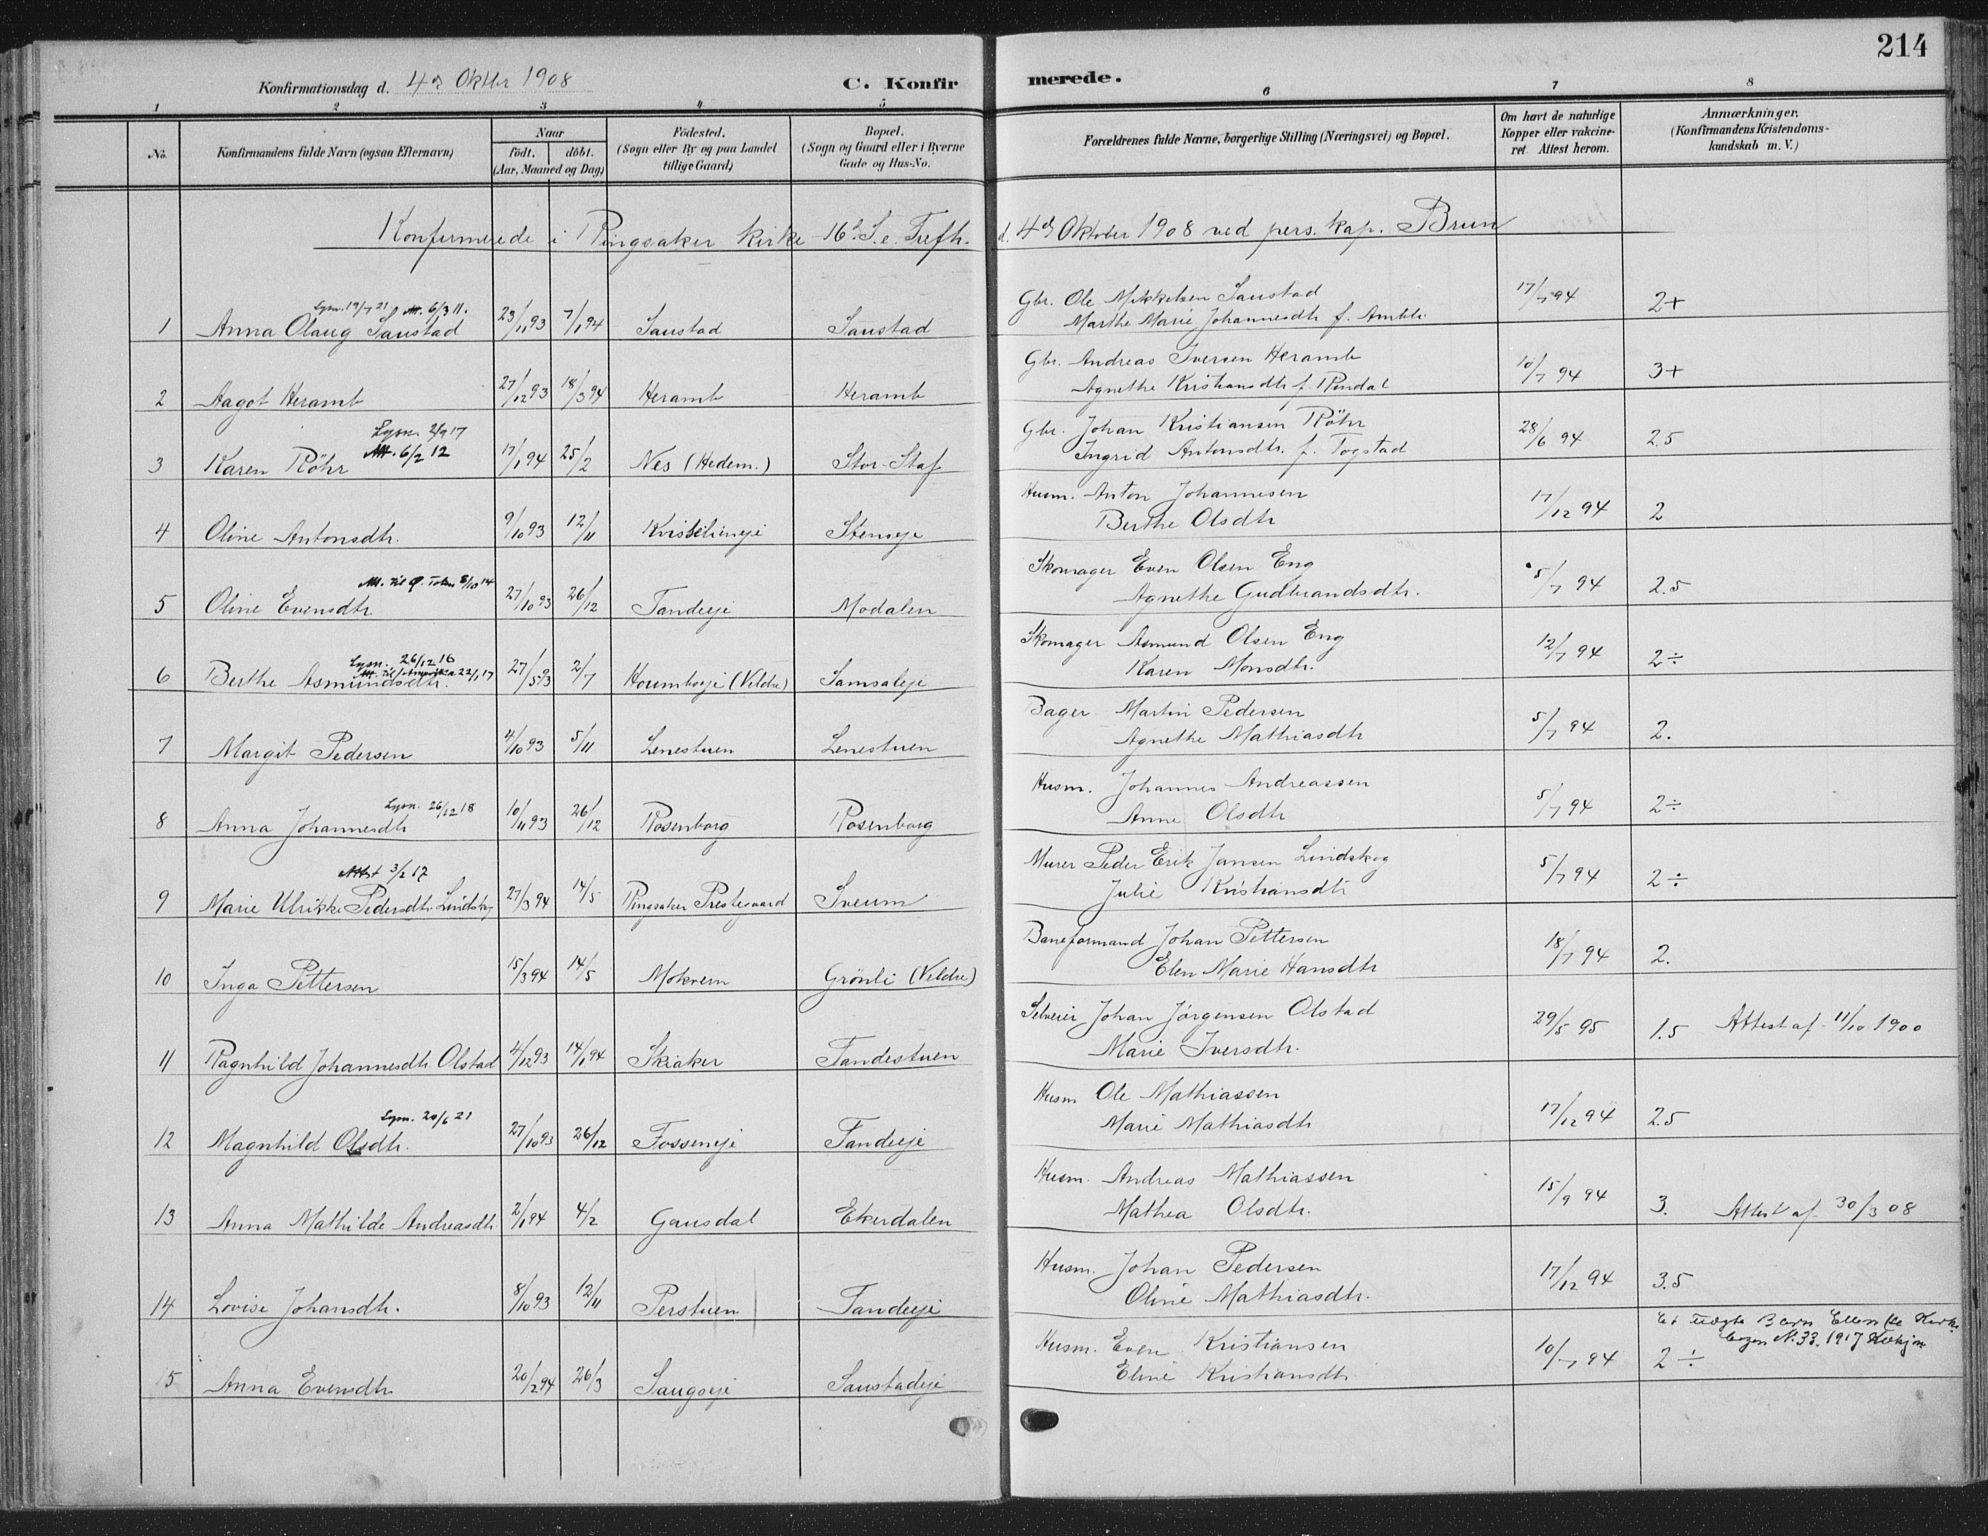 214
Konfirmationsdag d. 4de Oktbr 1908
C. Konfirmerede.
1 2 3 4 5 6 7 8
No.
Konfirmandens fulde Navn (ogsaa Efternavn)
Naar
födt. döbt.
(Aar, Maaned og Dag)
Födested.
(Sogn eller By og paa Landet
tillige Gaard)
Bopæl.
(Sogn og Gaard eller i Byerne
Gade og Hus-No.
Forældrenes fulde Navne, borgerlige Stilling (Næringsvei) og Bopæl.
Om havt de naturlige
Kopper eller vakcine-
ret. Attest herom.
Anmærkninger.
(Konfirmandens Kristendoms-
kundskab m. V.)
Konfirmerede i Ringsaker kirke 16de S. e. Trefh. d. 4de Oktober 1908 ved pers. kap. Brun
Lysn. 19/7 21 Att. 6/3 11.
1 Anna Olaug Saustad 23/11 93 7/1 94 Saustad Saustad Gbr. Ole Mikkelsen Saustad 17/7 94 2+
Marthe Marie Johannesdtr f. Ambli
2 Aagot Heramb 27/12 93 18/3 94 Heramb Heramb Gbr. Andreas Iversen Heramb 10/7 94 3+
Agnethe Kristiansdtr f. Rindal
Lysn. 2/9 17
Att. 6/2 12
3 Karen Röhr 17/1 94 25/2 Nes (Hedem.) Stor-Staf Gbr. Johan Kristiansen Röhr 28/6 94 2.5
Ingrid Antonsdtr. f. Togstad
4 Oline Antonsdtr. 9/10 93 12/11 Kristelieneje Steneje Husm. Anton Johannesen 17/12 94 2
Berthe Olsdtr
Att. til Ø. Toten 8/10 14
5 Oline Evensdtr 27/10 93 26/12 Tandeeje Modalen Skomager Even Olsen Eng 5/7 94 2.5
Agnethe Gudbrandsdtr.
Lysn. 26/12 16
Att. til Amerika 22/1 17
6 Berthe Asmundsdtr. 27/5 93 2/7 Houmbeje (Veldre) Samsaleje Skomager Asmund Olsen Eng 12/7 94 2÷
Karen Monsdtr.
7 Margit Pedersen 4/10 93 5/11 Lenestuen Lenestuen Bager Martin Pedersen 5/7 94 2.
Agnethe Mathiasdtr
Lysn. 26/12 18
8 Anna Johannesdtr 10/11 93 26/12 Rosenborg Rosenborg Husm. Johannes Andreassen 5/7 94 2÷
Anne Olsdtr
Attst 3/2 17
9 Marie Ulrikke Pedersdtr. Lindskog 27/3 94 14/5 Ringsaker Prestegaard Sveum Murer Peder Erik Jansen Lindskog 5/7 94 2÷
Julie Kristiansdtr
10 Inga Pettersen 15/3 94 14/5 Mokvem Grönli (Veldre) Baneformand Johan Pettersen 18/7 94 2.
Elen Marie Hansdtr
11 Ragnhild Johannesdtr. Olstad 4/12 93 14/1 94 Skiaker Tandestuen Selveier Johan Jörgensen Olstad 29/5 95 1.5 Attest af 11/10 1900
Marie Iversdtr.
Lysn. 20/6 21
12 Magnhild Olsdtr. 27/10 93 26/12 Fosseneje Tandeeje Husm Ole Mathiassen 17/12 94 2.5
Marie Mathiasdtr
13 Anna Mathilde Andreasdtr 2/1 94 4/2 Gausdal Ekerdalen Husm. Andreas Mathiassen 15/9 94 3. Attest af 30/3 08
Mathea Olsdtr.
14 Lovise Johansdtr. 8/10 93 12/11 Perstuen Tandeeje Husm. Johan Pedersen 17/12 94 3.5
Oline Mathiasdtr.
Et uægte Barn Ellen (se Kirke
bogen N. 33. 1917
15 Anna Evensdtr 20/2 94 26/3 Saugseje Saustadeje Husm. Even Kristiansen 10/7 94 2÷
Eline Kristiansdtr